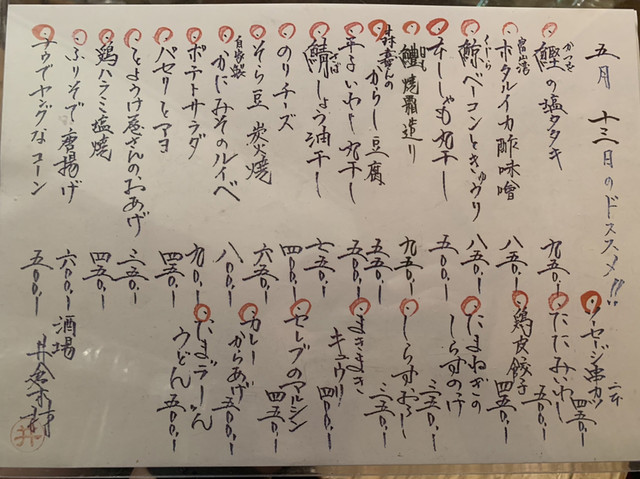 五月 十三日のドススメ!!
かつお
鰹の塩タタキ 九五〇ー
富山湾
ホタルイカ酢味噌 八五〇ー
くじら
鯨ベーコンときゅうり 八五〇ー
本ししゃも丸干し 五〇〇ー
鱧焼霜造り 九五〇ー
からし豆腐 五五〇ー
平子いわし丸干し 五〇〇ー
さば
鯖しょう油干し 七五〇ー
のりチーズ 四〇〇ー
そら豆 炭火焼 六五〇ー
自家製
かにみそのルイベ 八〇〇ー
ポテトサラダ 九〇〇ー
パセリとマヨ 四五〇ー
とようけ屋さんのおあげ 三五〇ー
鶏ハラミ塩焼 四五〇ー
ふりそで唐揚げ 六〇〇ー
ナウでヤングなコーン 五〇〇ー
ソーセージ串カツ 二本 四五〇ー
たたみいわし 五〇〇ー
鶏皮餃子 四五〇ー
たまねぎのしらすのけ 三五〇ー
しらすおろし 三五〇ー
まきまきキュウリ 四〇〇ー
セレブのマルシン 四五〇ー
カレーからあげ 五〇〇ー
たまごラーどん
うどん 五〇〇ー
酒場
井倉木材